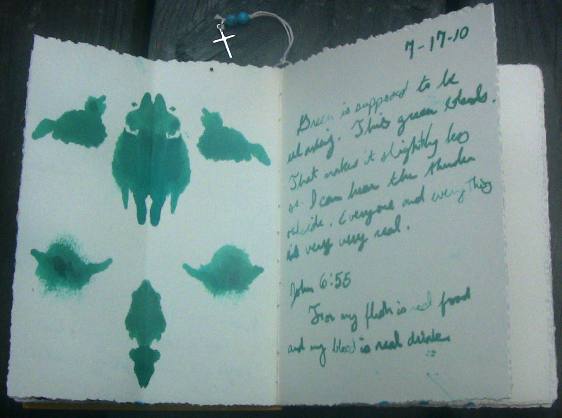 7-17-10
Green is supposed to be
relaxing. This green stands.
That makes it slightly less
so. I can hear the thunder
outside. Everyone and everything
is very very real.
John 6:55
For my flesh is real food
and my blood is real drink.